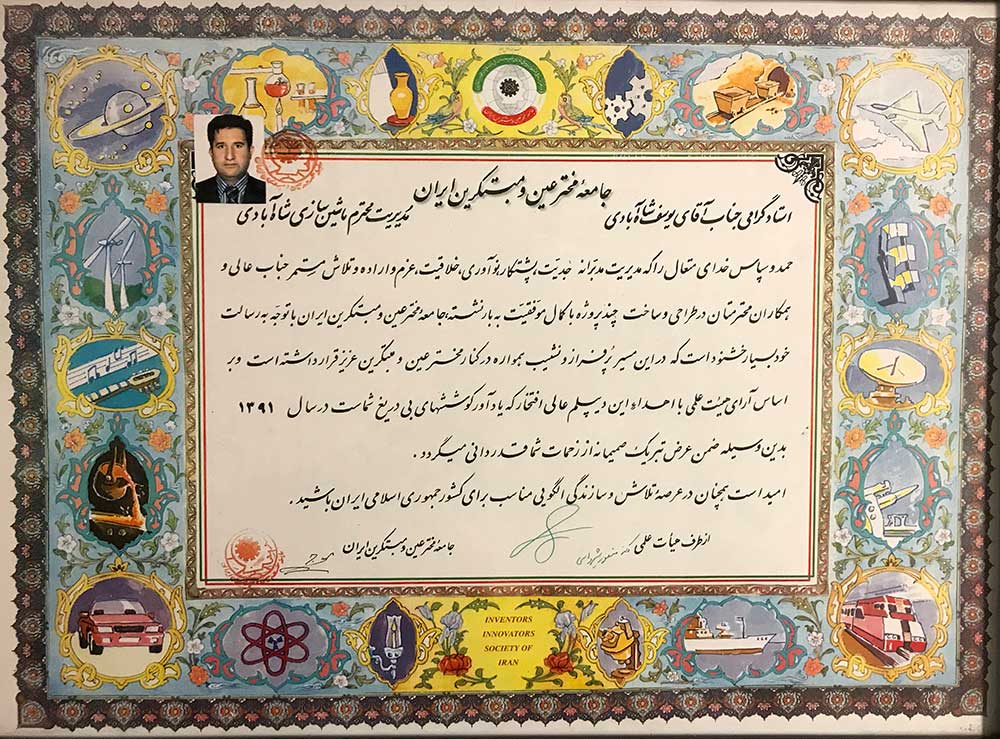 جامعهٔ مخترعین و مبتکرین ایران
استاد گرامی جناب آقای یوسف شاه آبادی مدیریت محترم ماشین سازی شاه آبادی
حمد و سپاس خدای متعال را که مدیریت مدبرانه جدیت پشتکار نوآوری، خلاقیت، عزم و اراده و تلاش مستمر جناب عالی و
همکاران محترمتان در طراحی و ساخت چند پروژه با کمال موفقیت به بار نشسته، جامعه مخترعین و مبتکرین ایران با توجه به رسالت
خود بسیار خشنود است که در این مسیر پُر فراز و نشیب همواره در کنار مخترعین و مبتکرین عزیز قرار داشته است و بر
اساس آرای هیئت علمی با اهداء این دیپلم عالی افتخار که یادآور کوششهای بی دریغ شماست در سال ۱۳۹۱
بدین وسیله ضمن عرض تبریک صمیمانه از زحمات شما قدردانی میگردد .
امید است همچنان در عرصهٔ تلاش و سازندگی الگویی مناسب برای کشور جمهوری اسلامی ایران باشید .
از طرف هیأت علمی
جامعه مخترعین و مبتکرین ایران
INVENTORS
INNOVATORS
SOCIETY OF
IRAN